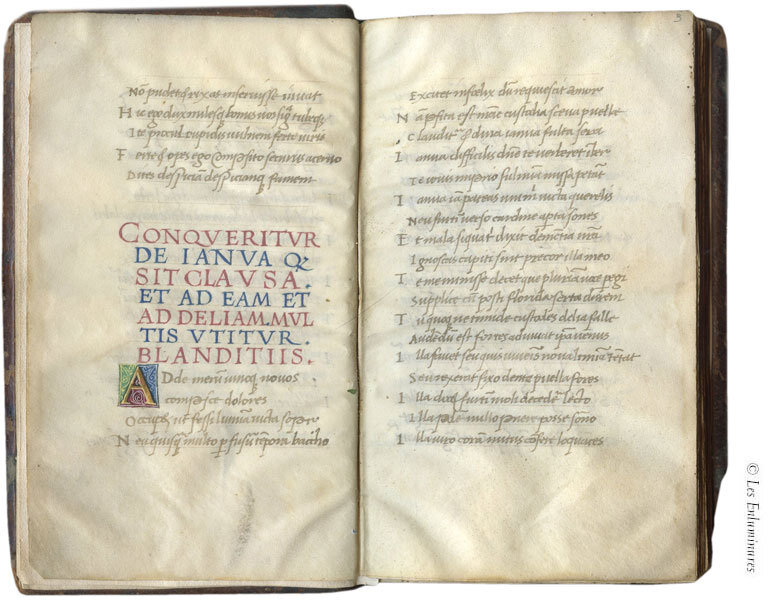 Nō pudet & rixas inseruisse iuvat
Hic ego dux milesq; bonus vos signa tubeq;
Ite procul cupidis vulnera ferte viris
Ferte & opes ego cōposito securus acervo
Dites despiciā despiciamq; famem
CONQVERITVR
DE IANVA Q
SIT CLAVSA.
ET AD EAM ET
AD DELIAM. MVL
TIS VTITVR.
BLANDITIIS.
Adde merū novos
cōpesce dolores
Occupet ut fessi lumina victa sopor
Neu quisq; multo pfusū tēpora baccho
3
Excitet infœlix dū requiescat amor
Nā posita est nrāe custodia sæva puellæ
Clauditur & dura ianua fulta sera
Ianua difficilis dñe te verberet imber
Te iovis impio fulmina missa petāt
Ianua iā pateas uni mihi victa querelis
Neu furtī verso cardine apta sones
Et mala siqua t dixit dementia nrā
Ignoscas capiti sint precor illa meo
Te meminisse decet que plurima voce peregi
Supplice cū posti florida serta darem
Tu quoque ne timide custodes delia falle
Audēdū est fortes adiuvat ipa venus
Illa favet seu quis iuvenis nova limina tētat
Seu reserat fixo dente puella fores
Illa docet furtī molli decedere lecto
Illa pedē nullo ponere posse sono
Illa viro corā nutus cōferre loquaces
© Les Enluminures